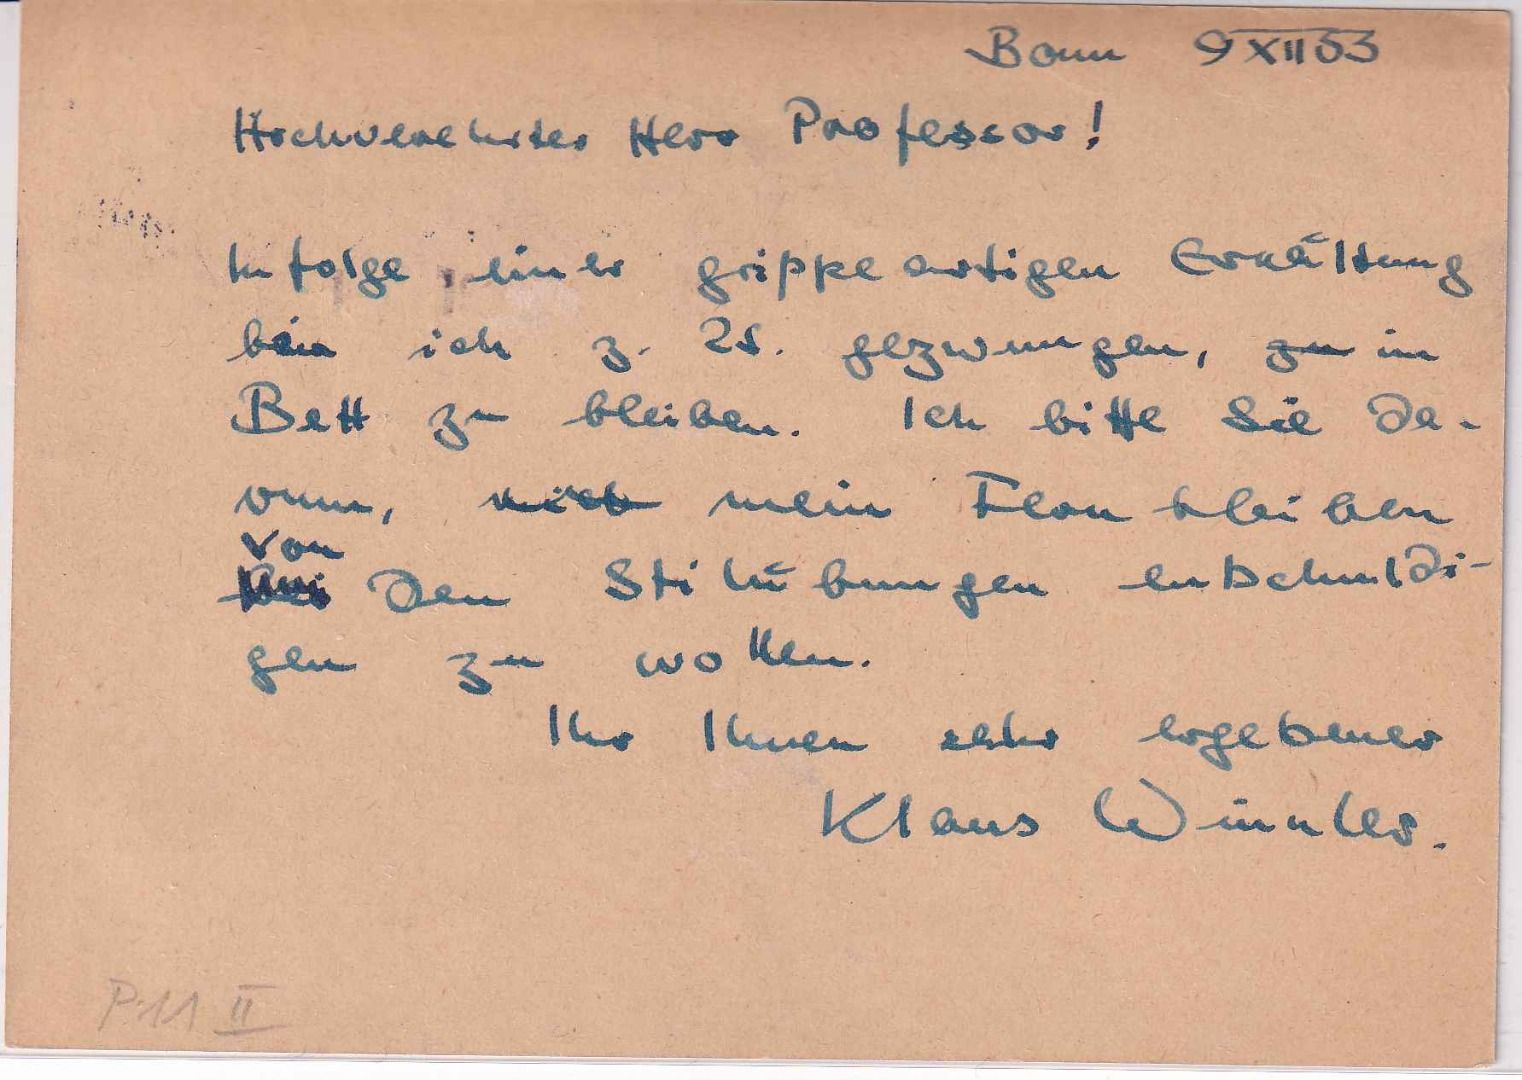 Bonn 9 XII 53
Hochverehrter Herr Professor!
Infolge einer grippeartigen Erkältung
bin ich z. Zt. gezwungen, zu im
Bett zu bleiben. Ich bitte Sie da-
rum, mein Fernbleiben
von
den Stilübungen entschuldi-
gen zu wollen.
Ihr Ihnen sehr ergebener
Klaus Winkler.
P.11 II